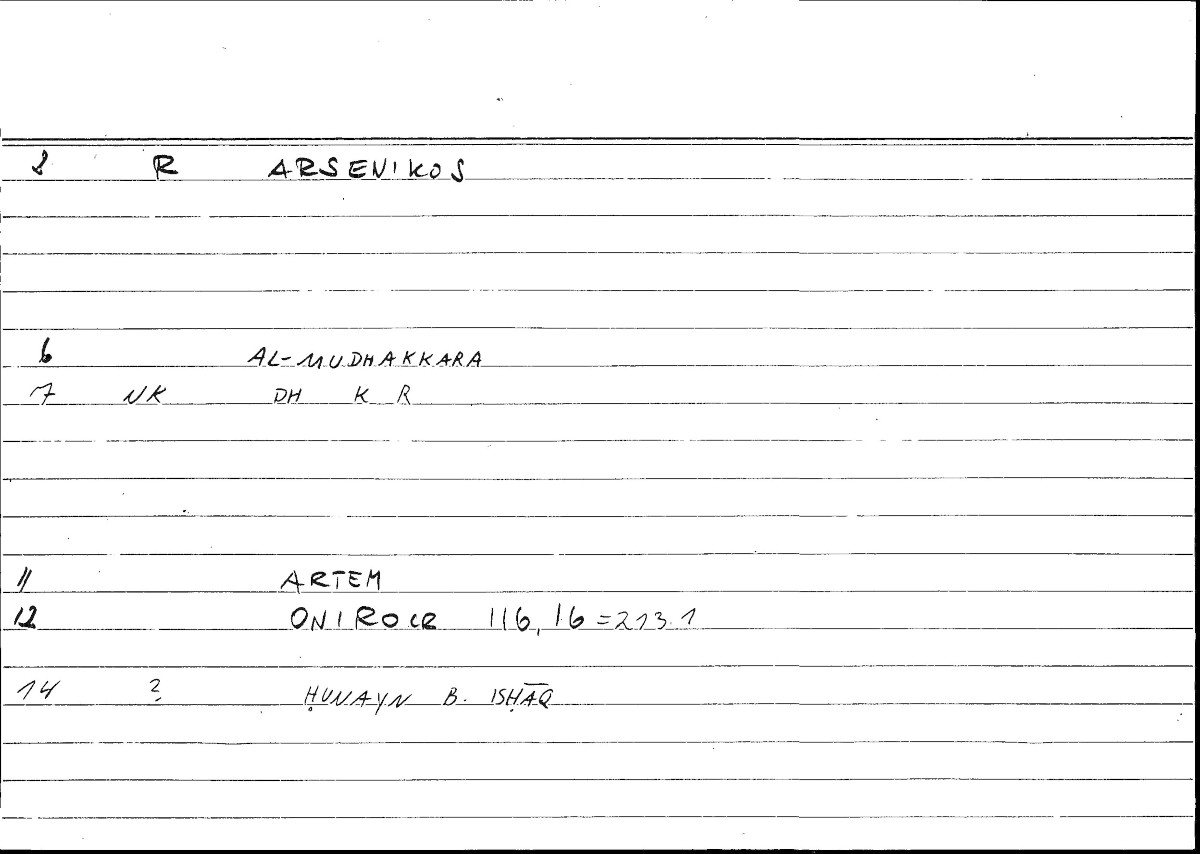 2 R ARSENIKOS
6 AL-MUDHAKKARA
7 NK DH K R
11 ARTEM
12 ONIROCR 116, 16 = 213.1
14 ? ḤUNAYN B. ISḤĀQ